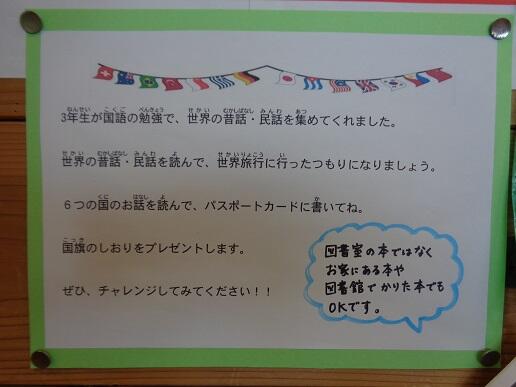 3年生が国語の勉強で、世界の昔話・民話を集めてくれました。
世界の昔話・民話を読んで、世界旅行に行ったつもりになりましょう。
６つの国のお話を読んで、パスポートカードに書いてね。
国旗のしおりをプレゼントします。
ぜひ、チャレンジしてみてください！！
図書室の本ではなく
お家にある本や
図書館でかりた本でも
OKです。